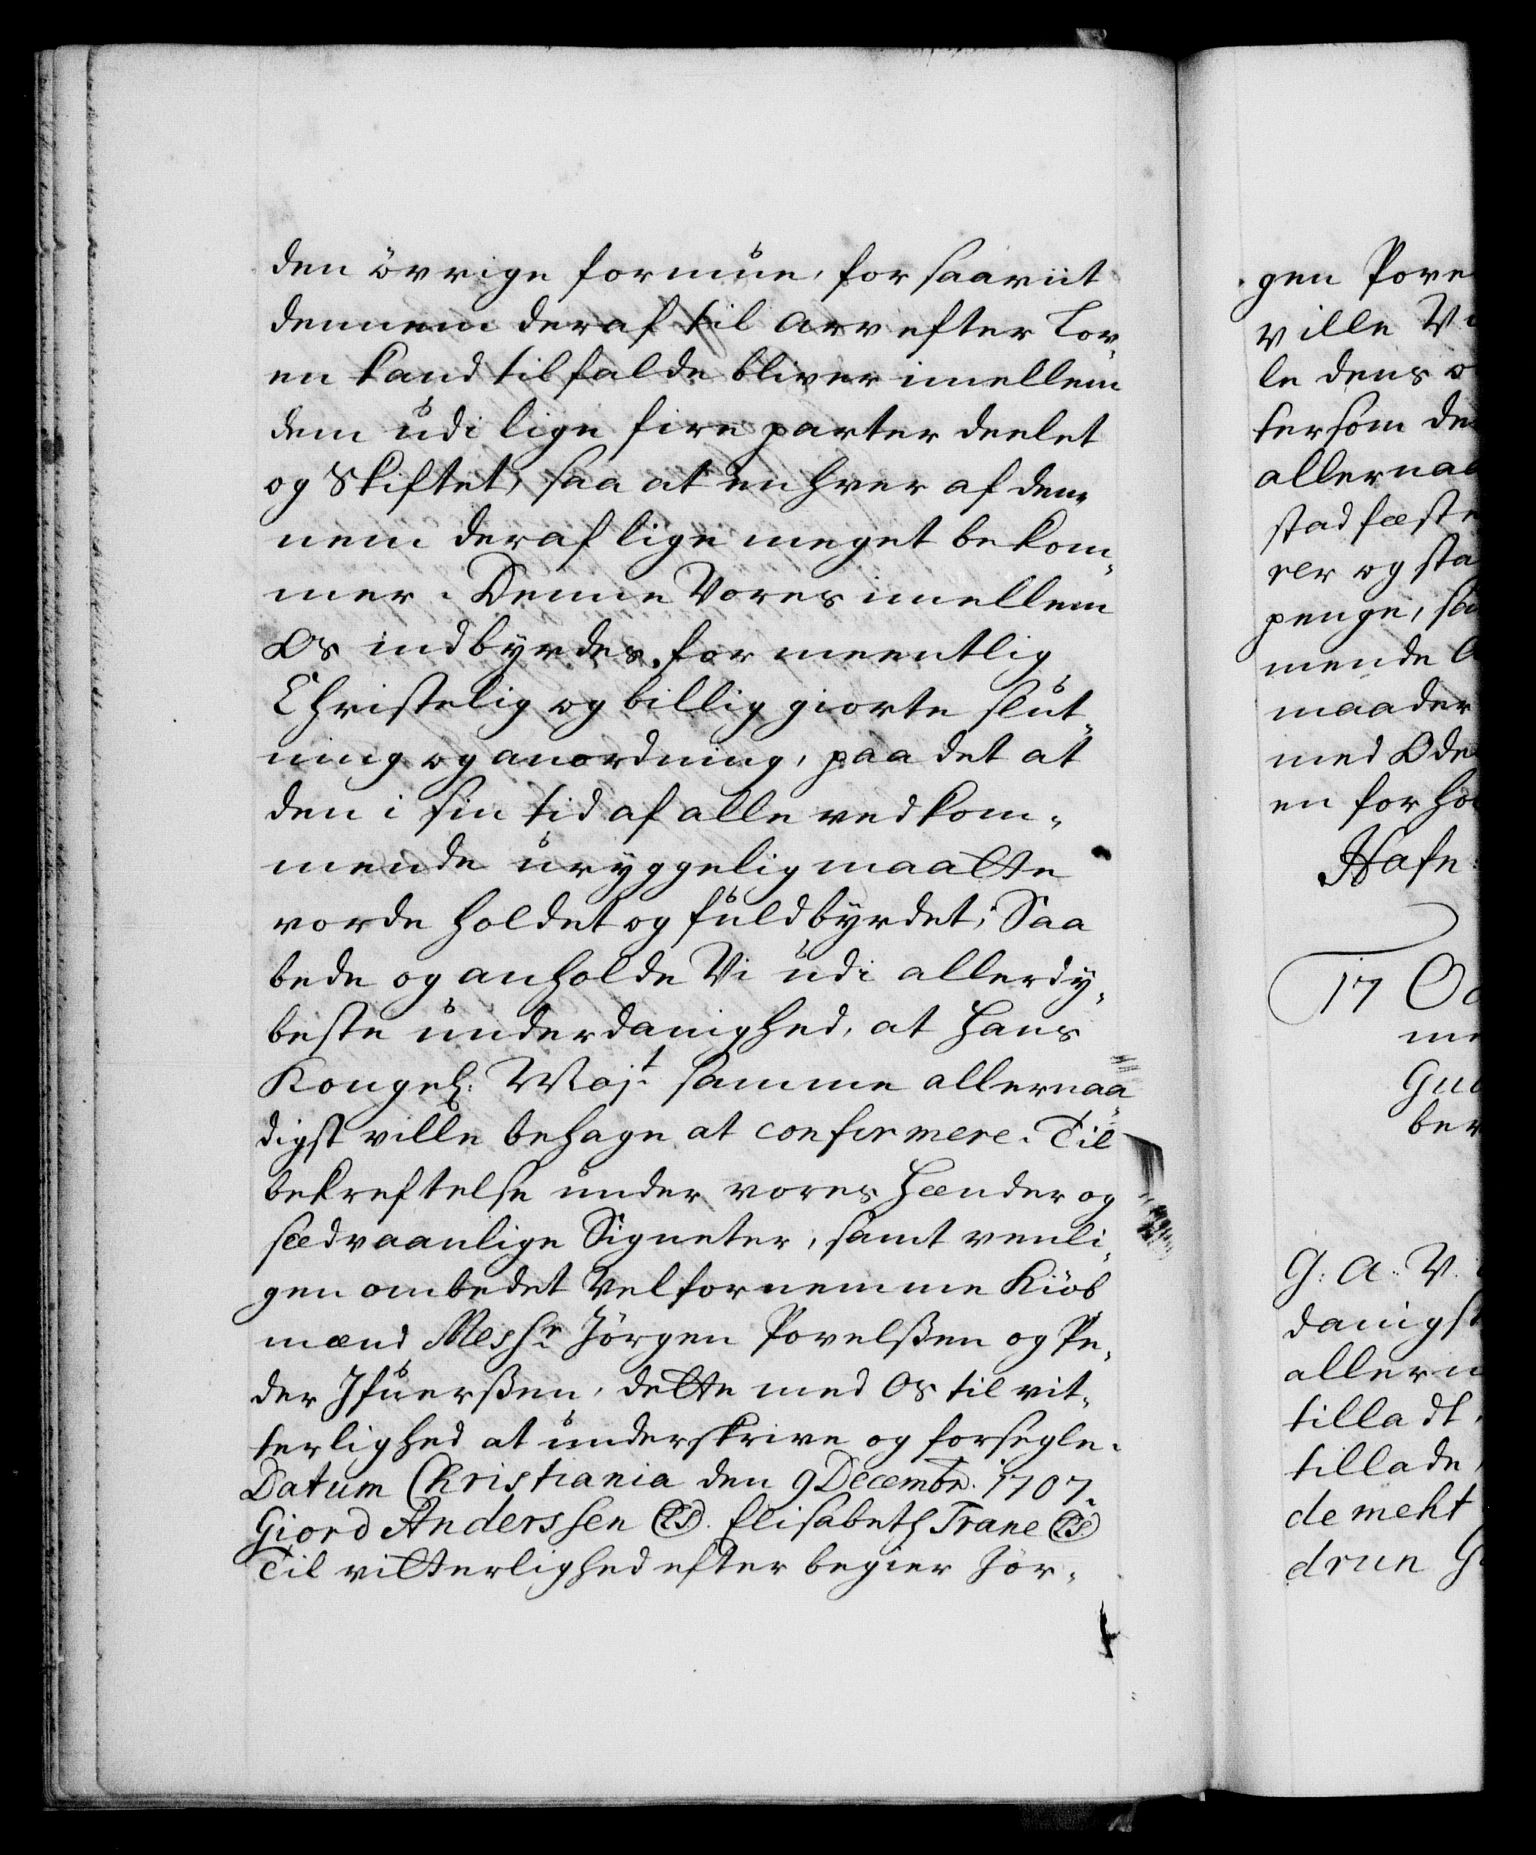 den övrige formue, for saavit
dennem deraf til arv efter Lov,
en kand tilfalde bliver imellem
dem udi lige fire parter deelet
og skiftet, saa at enhver af den,
nem deraf lige meget bekom,
mer. Denne Vores imellem
Os indbyrdes formeentlig
Christelig og billig giorte slut,
ning og anordning, paa det at
den i sin tid af alle vedkom,
mende uryggelig maatte
vorde holdet og fuldbyrdet; Saa
bede og anholde Vi udi allerdy,
beste underdanighed, at Hans
Kongel: Maj:t samme allernaa
digst ville behage at confirmere. Til
bekreftelse under vores Hænder og
sædvaanlige Signeter, samt venli,
gen ombedet Velfornemme Kiöb
mænd Messrs Jörgen Povelssen og Pe,
der Ifuerssen, dette med Os til vit,
terlighed at underskrive og forsegle.
Datum Christiania den 9 Decembr. 1707.
Giord Anderssen (LS). Elisabeth Trane (LS)
Til vitterlighed efter begier Jör,
gen Pove
ville
le dens
tersom
allernaa
stadfæste
rer og sta
penge,
mende
maader
med
en for
Hafn:
17
G: A: V.
danigst
allern
tilladt,
tillade,
de meht
drun